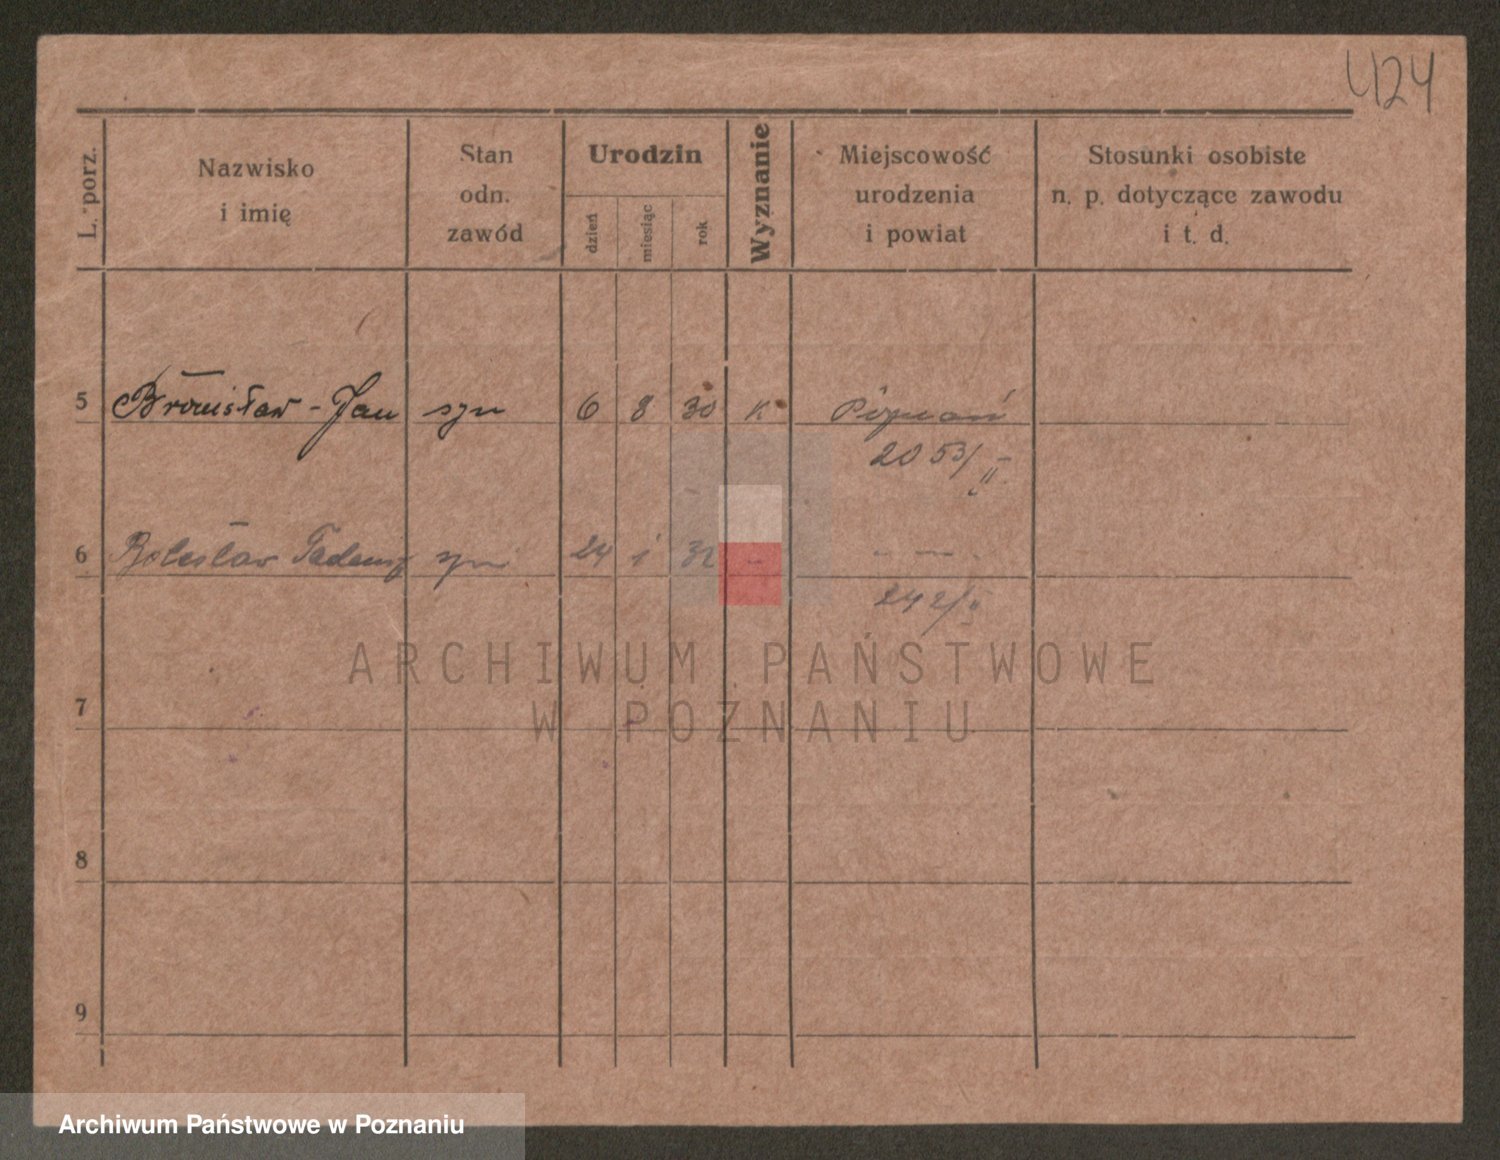 424
L. porz.
Nazwisko
i imię
Stan
odn.
zawód
Urodzin
dzień
miesiąc
rok
Wyznanie
Miejscowość
urodzenia
i powiat
Stosunki osobiste
n. p. dotyczące zawodu
i t. d.
5 Bronisław - Jan syn 6 8 30 K Poznań
2053/II
6 Bolesław Tadeusz syn 24 1 32 - - — -
242/II
ARCHIWUM PAŃSTWOWE
W POZNANIU
7
8
9
Archiwum Państwowe w Poznaniu